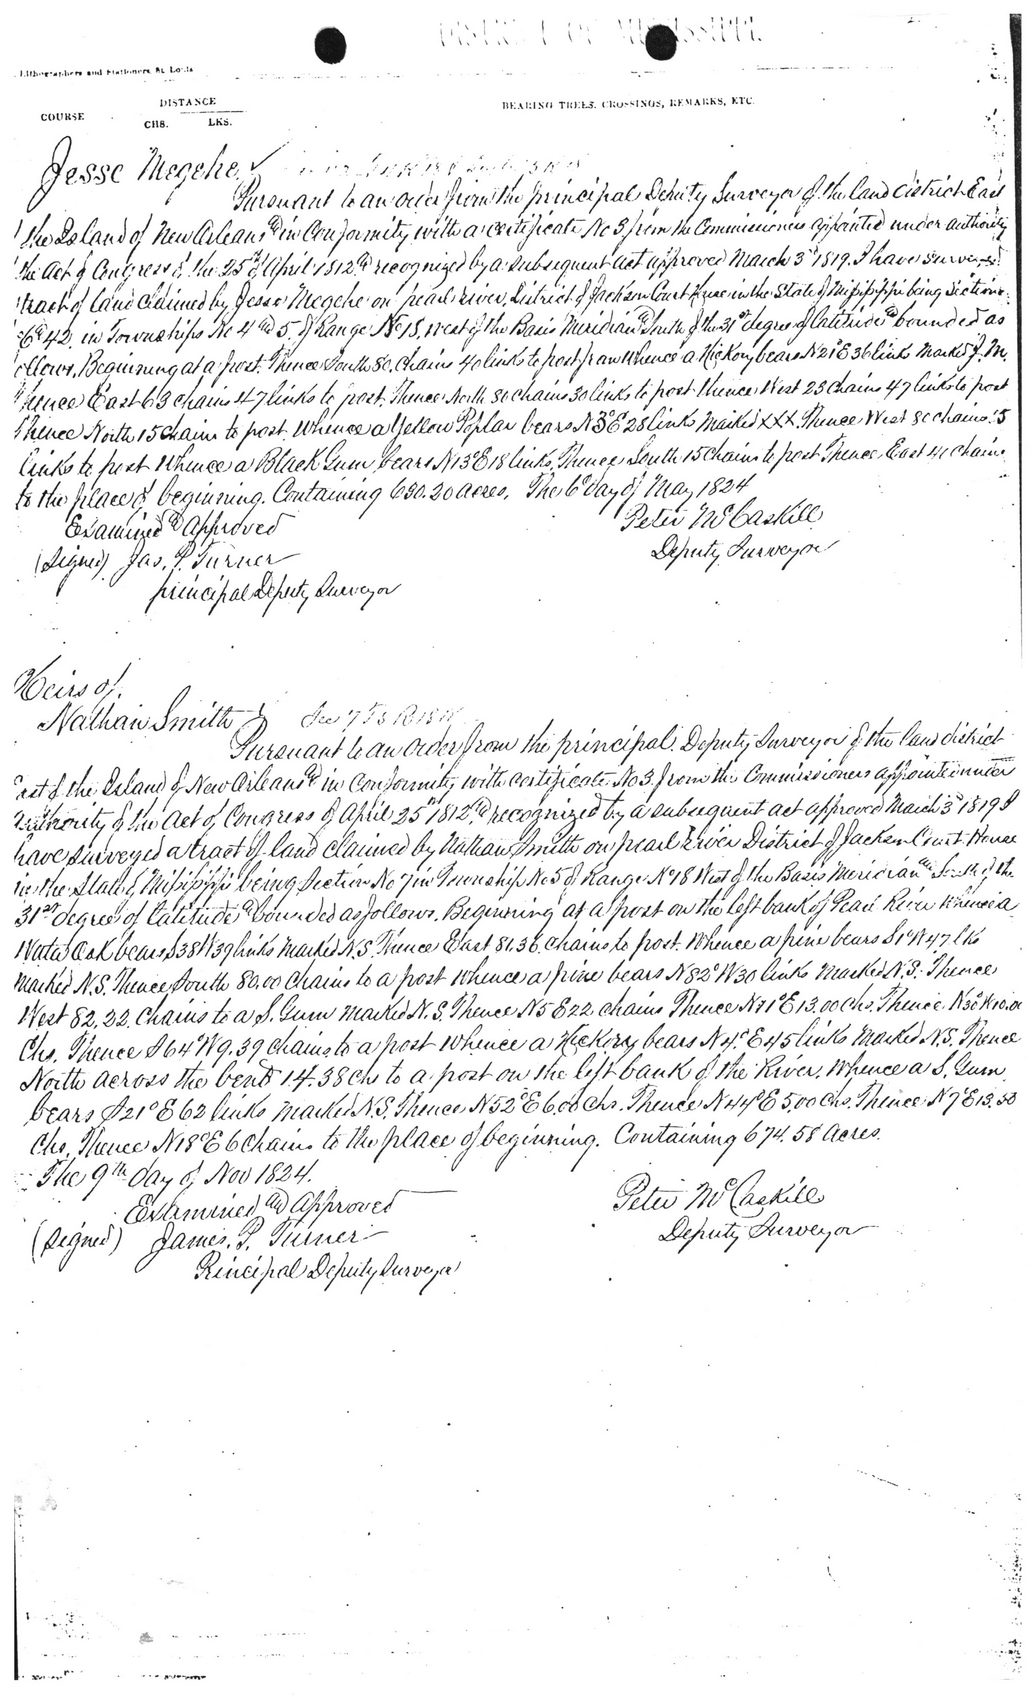 Lithographers and Stationers, St. Louis
DISTANCE
COURSE CHS. LKS. BEARING TREES, CROSSINGS, REMARKS, ETC.
Jesse Megehe
Pursuant to an order from the principal Deputy Surveyor of the land district East
the Island of New Orleans & in Conformity with a certificate No 3 from the Commissioners appointed under authority
the Act of Congress of the 25th of April 1812 & recognized by a subsequent act approved March 3d 1819. I have surveyed
tract of land claimed by Jesse Megehe on pearl river, District of Jackson Court House in the State of Mississippi being Sections
6 & 42 in Townships No 4 and 5 of Range No 18, West of the Basis Meridian & South of the 31st degree of latitude & bounded as
ollows, Beginning at a post. Thence South 80 chains 40 links to post from whence a Hickory bears N21°E 36 links marked J.M.
Thence East 63 chains 47 links to post. Thence North 80 chains 30 links to post thence West 23 chains 47 links to post
Thence North 15 chains to post. Whence a Yellow Poplar bears N3°E 28 links marked XXX. Thence West 80 chains 15
links to post Whence a Black Gum bears N13°E 18 links. Thence South 15 chains to post Thence East 41 chains
to the place of beginning. Containing 630.20 acres. The 6th day of May 1824
Examined & Approved Peter McCaskill
(Signed) Jas. P. Turner Deputy Surveyor
principal Deputy Surveyor
Heirs of.
Nathan Smith } Sec 7 T5 R18W
Pursuant to an order from the principal Deputy Surveyor of the land district
East of the Island of New Orleans & in Conformity with certificate No 3. from the Commissioners appointed under
authority of the Act of Congress of April 25th 1812, & recognized by a subsequent act approved March 3d 1819 I
have surveyed a tract of land claimed by Nathan Smith on pearl River District of Jackson Court House
in the State of Mississippi being Section No 7 in Township No 5 of Range No 18 West of the Basis Meridian and South of the
31st degree of Latitude & bounded as follows. Beginning at a post on the left bank of Pearl River Whence a
Water Oak bears S38°W 39 links marked N.S. Thence East 81.36 chains to post. Whence a pine bears S1°W 47 lks
marked N.S. Thence South 80.00 chains to a post whence a pine bears N82°W 30 links marked N.S. Thence
West 82.22 chains to a S. Gum marked N.S. Thence N5E 22 chains Thence N71°E 13.00 chs. Thence N30W 10.00
Chs. Thence S64°W 9.39 chains to a post whence a Hickory bears N4°E 45 links marked N.S. Thence
North across the bend 14.38 chs to a post on the left bank of the River. Whence a S. Gum
bears S21°E 62 links marked N.S. Thence N52°E 6.00 chs. Thence N44°E 5.00 chs. Thence N7°E 13.50
chs, Thence N18°E 6 chains to the place of beginning. Containing 674.58 Acres.
The 9th day of Nov 1824.
Examined and Approved Peter McCaskill
(Signed) James. P. Turner Deputy Surveyor
Principal Deputy Surveyor